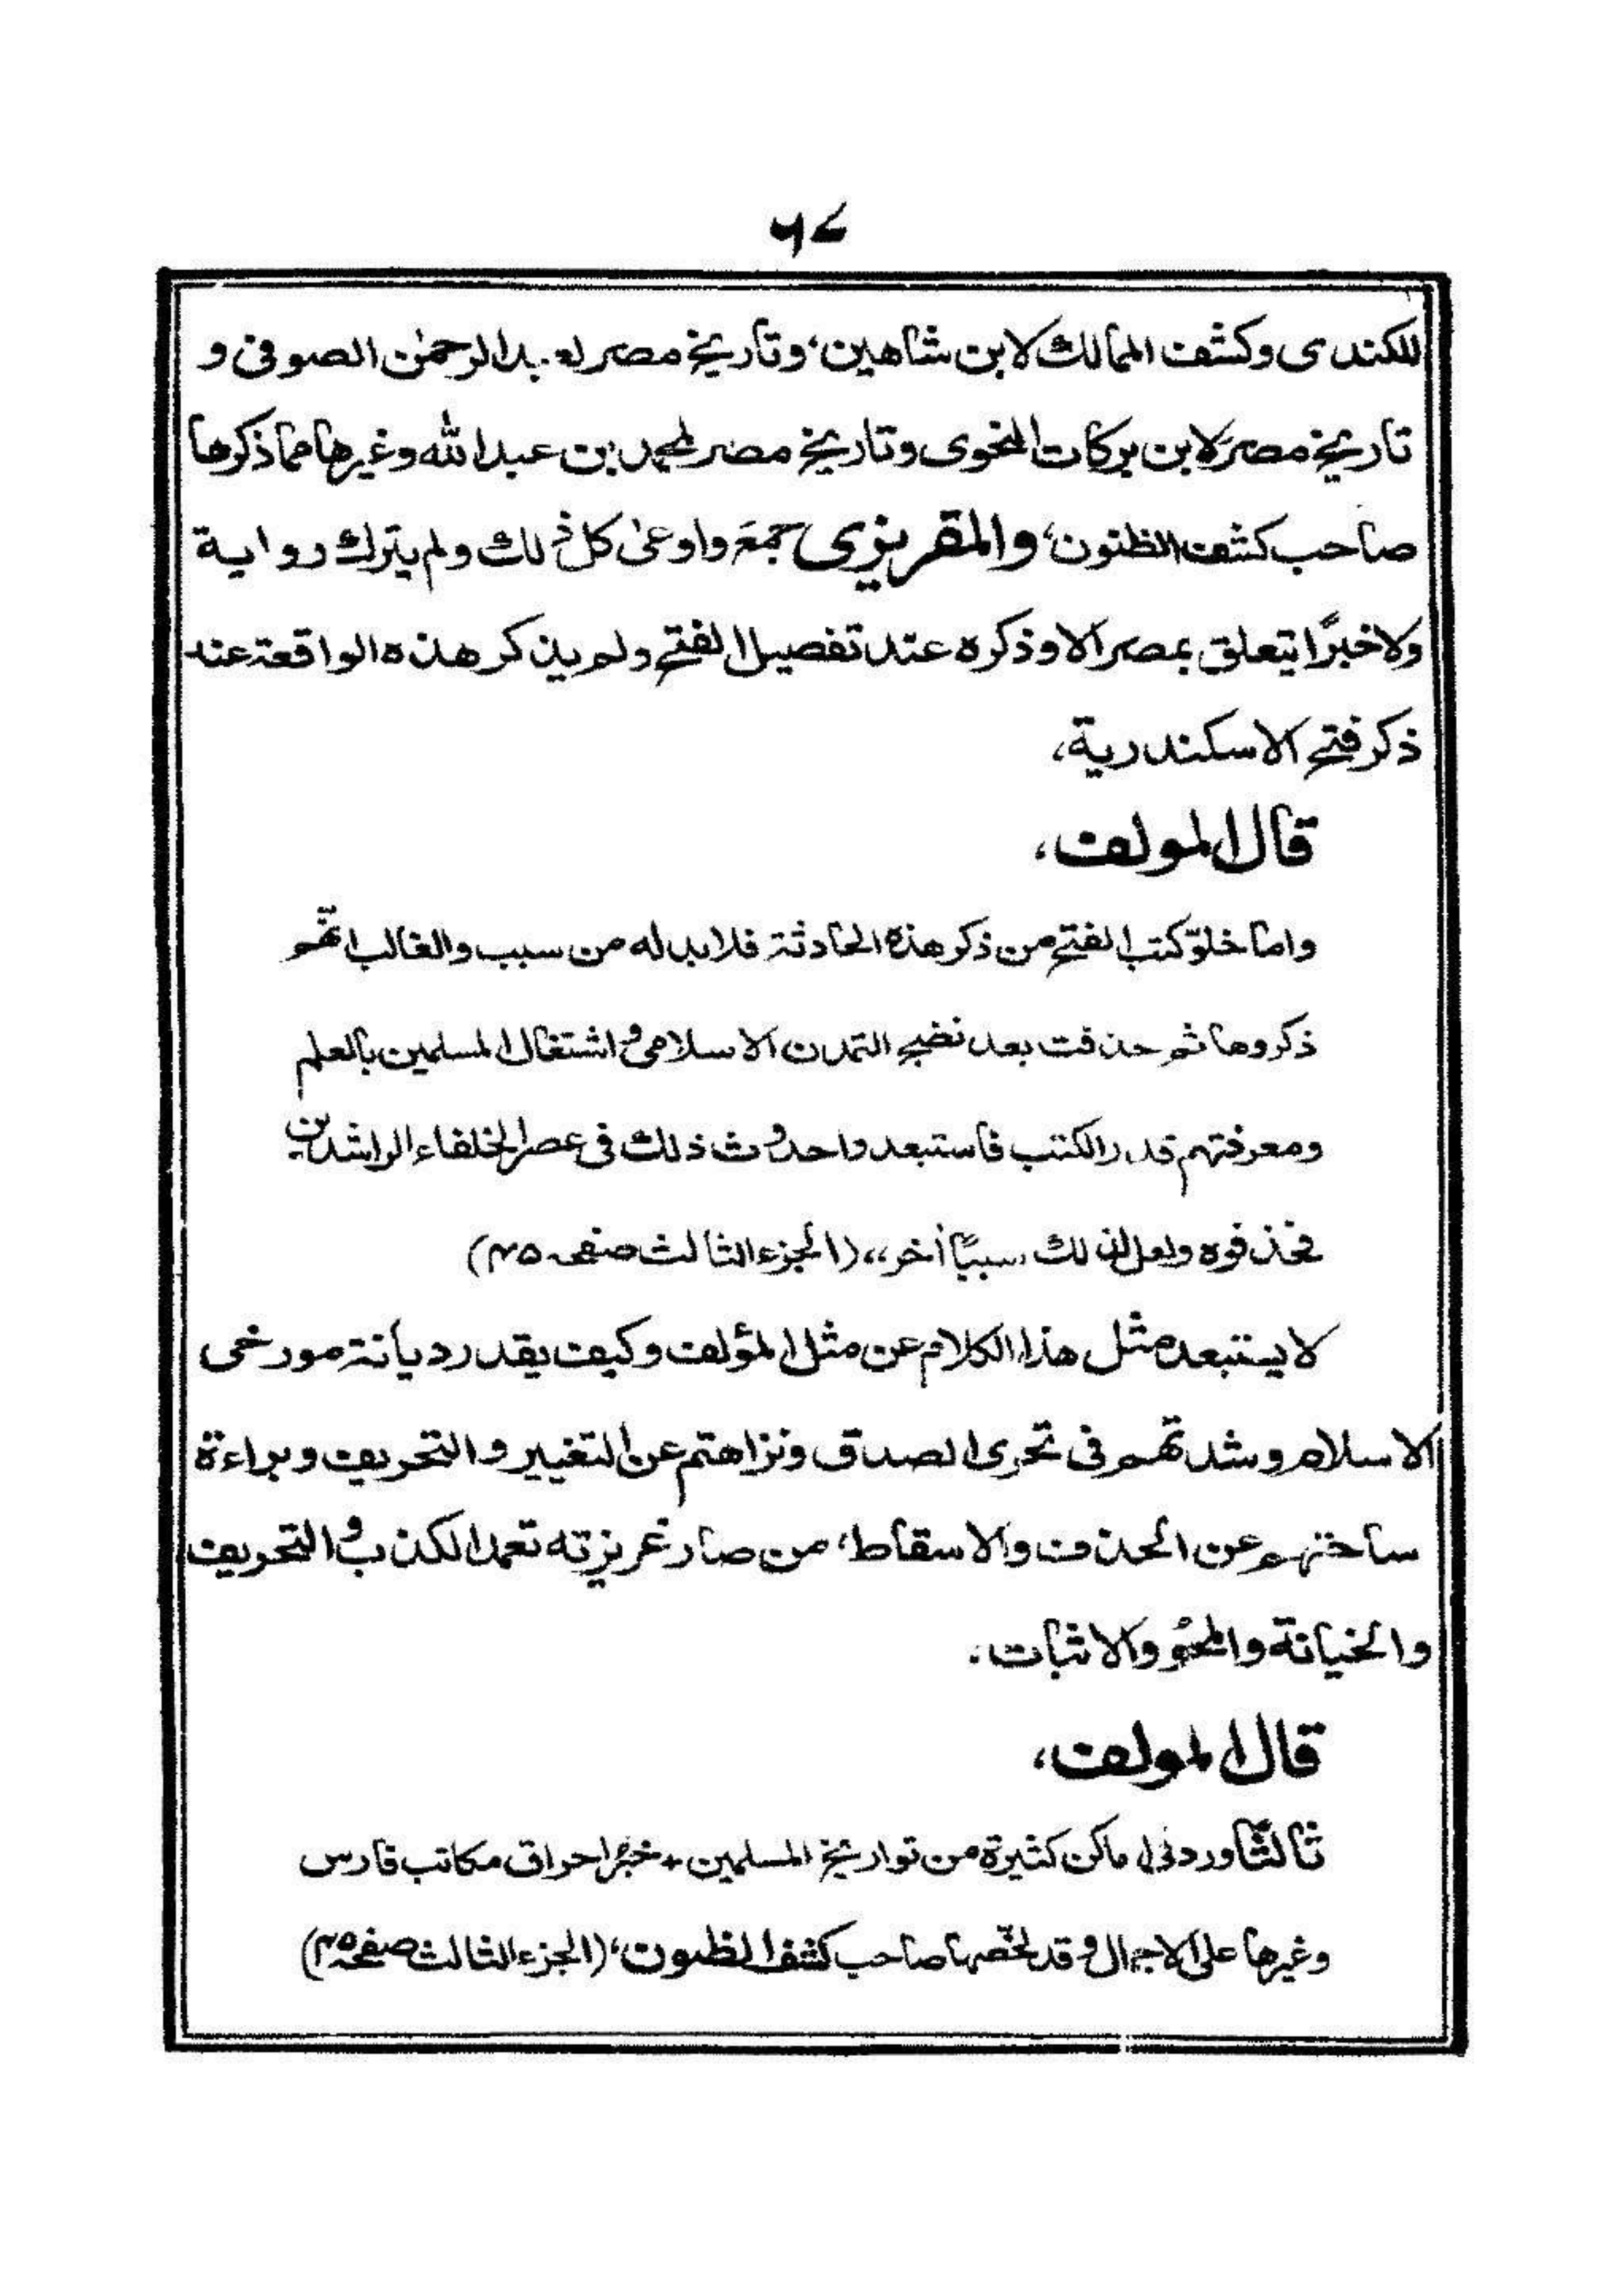 ٦٧
للكندى وكشف الممالك لابن شاهين، وتاريخ مصر لعبدالرحمٰن الصوفى و
تاريخ مصر لابن بركات النحوى وتاريخ مصر لمحمد بن عبدالله وغيرها مما ذكرها
صاحب كشف الظنون، والمقريزى جمعَ واوعىٰ كل ذلك ولم يترك رواية
ولاخبرًا يتعلق بمصر الا وذكره عند تفصيل الفتح ولم يذكر هذه الواقعة عند
ذكر فتح الاسكندرية،
قال المولف،
واما خلوّ كتب الفتح من ذكر هذه الحادثة فلابد له من سبب والغالب انّهم
ذكروها ثم حذفت بعد نضج التمدن الاسلامى واشتغال المسلمين بالعلم
ومعرفتهم قدر الكتب فاستبعدوا حدوث ذلك فى عصر الخلفاء الراشدين
فحذفوه ولعل لذلك سببًا أخر،، (الجزء الثالث صفحه ٤٥)
لا يستبعد مثل هذا الكلام عن مثل المؤلف وكيف يقدر ديانة مورخى
الاسلام وشدتهم فى تحرى الصدق ونزاهتهم عن التغيير والتحريف وبراءة
ساحتهم عن الحذف والاسقاط، من صار غريزته تعمد الكذب والتحريف
والخيانة والمحو والاثبات.
قال المولف،
ثالثًا ورد فى اماكن كثيرة من تواريخ المسلمين خبرُ احراق مكاتب فارس
وغيرها على الاجمال وقد لخّصها صاحب كشف الظنون، (الجزء الثالث صفحه ٤٥)